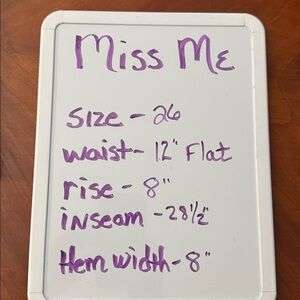 Miss Me
Size - 26
waist - 12" Flat
rise - 8"
inseam - 28 1/2"
Hem width - 8"